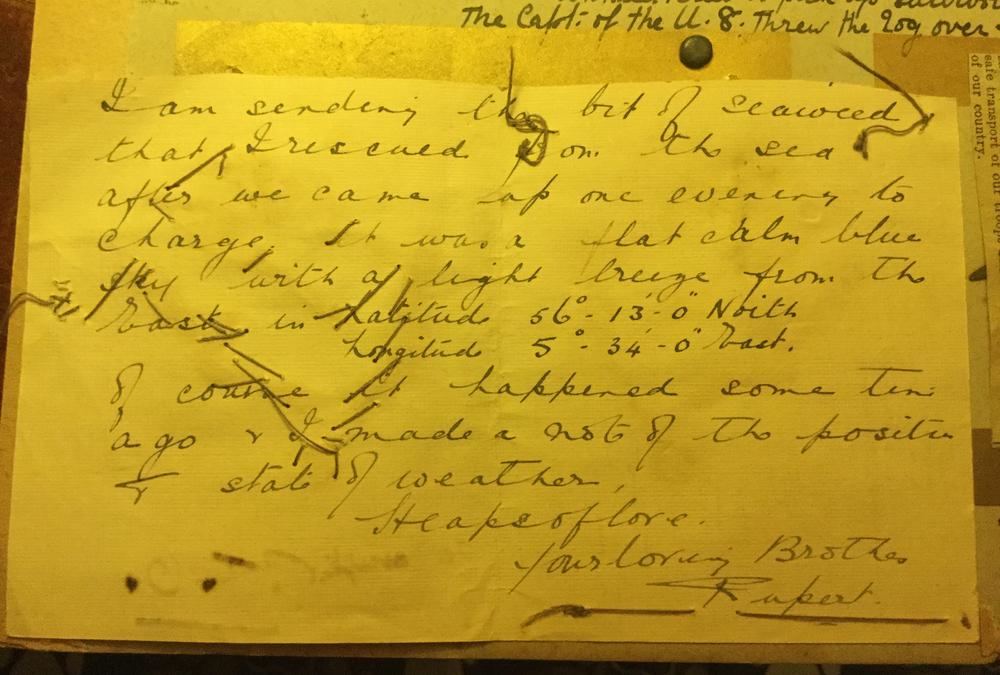 The Capt. of the U. 8. Threw the Log over-
I am sending the bit of seaweed
that I rescued from the sea
after we came up one evening to
charge. It was a flat calm blue
sky with a light breeze from the
East, in Latitude 56° - 13' - 0" North
Longitude 5° - 34' - 0" East.
Of course it happened some time
ago & I made a note of the position
& state of weather,
Heaps of love.
Your loving Brother
Rupert.
safe transport of our
of our country.